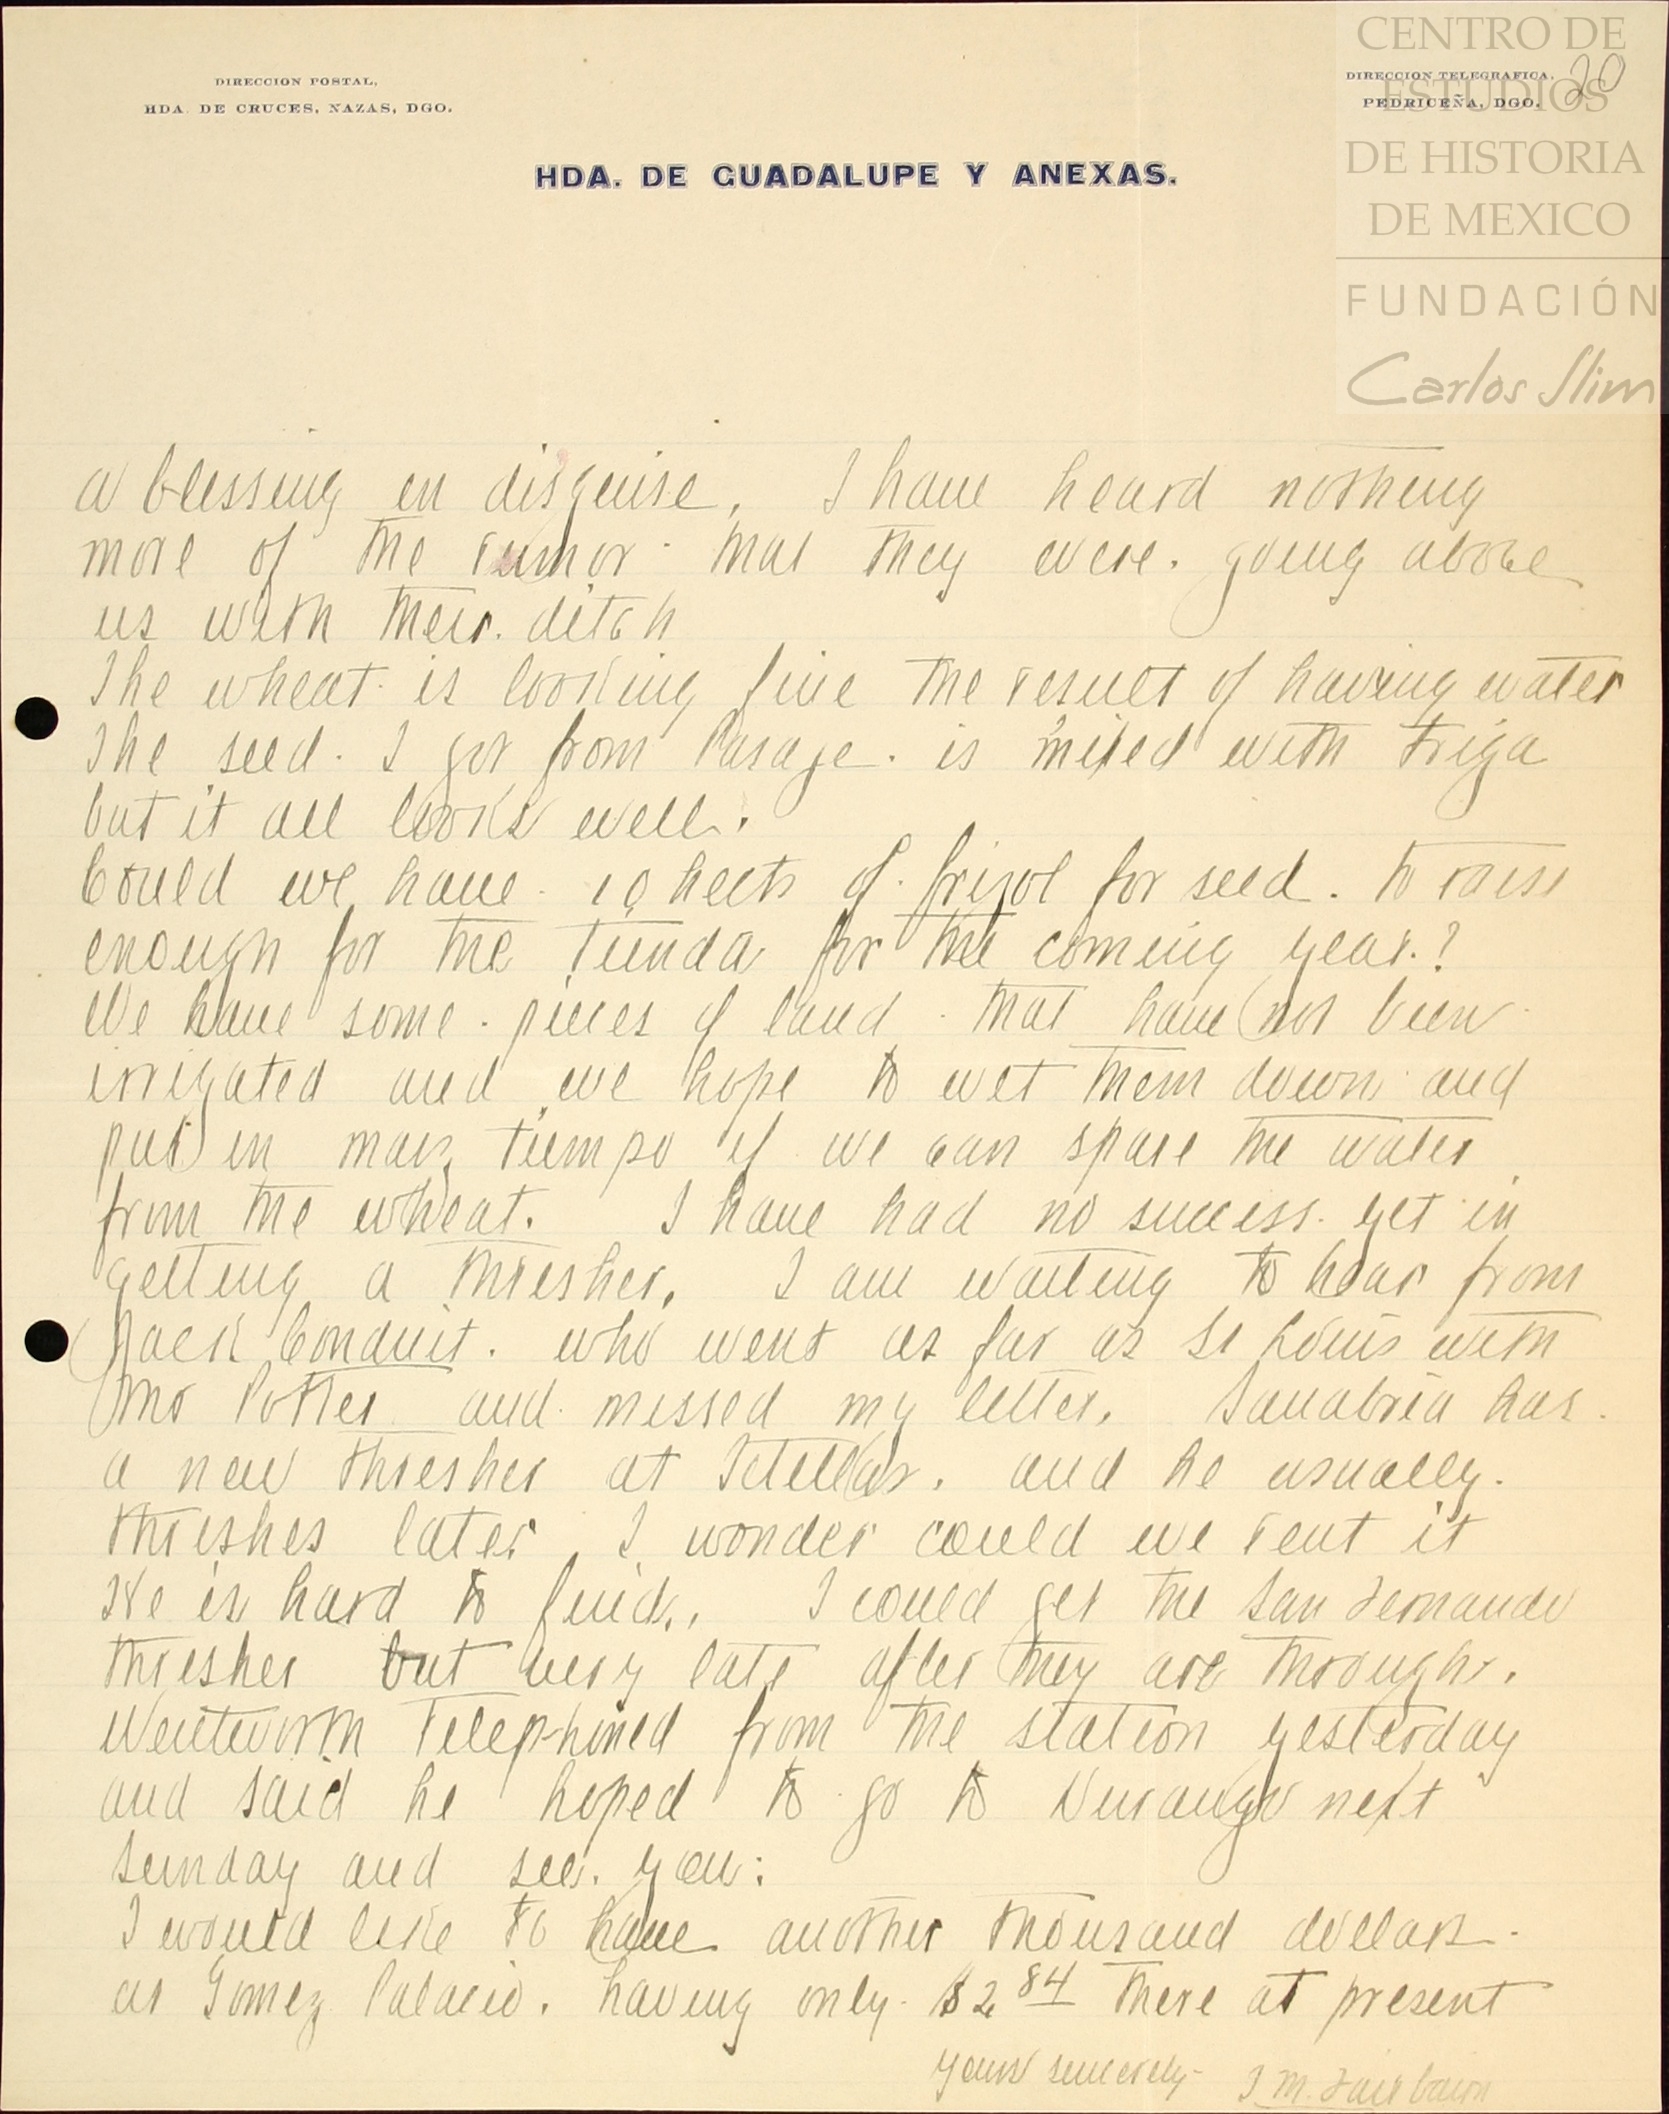 DIRECCION POSTAL,
HDA. DE CRUCES, NAZAS, DGO.
DIRECCION TELEGRAFICA,
PEDRICEÑA, DGO.
20
CENTRO DE
ESTUDIOS
DE HISTORIA
DE MEXICO
FUNDACIÓN
Carlos Slim
HDA. DE GUADALUPE Y ANEXAS.
a blessing in disguise. I have heard nothing
more of the rumor that they were going above
us with their ditch
The wheat is looking fine the result of having water
The seed I got from Pasaje is mixed with triga
but it all looks well.
Could we have 10 hects of frijol for seed. to raise
enough for the Tienda for the coming year?
We have some pieces of land that have not been
irrigated and we hope to wet them down and
put in maiz tiempo if we can spare the water
from the wheat. I have had no success yet in
getting a thresher. I am waiting to hear from
Jack Conduit. who went as far as St Louis with
Mr Potter and missed my letter. Sanabria has
a new thresher at and he usually
threshes later. I wonder could we rent it
He is hard to find. I could get the San Fernando
thresher but very late after they are through.
Wentworth Telephoned from the station yesterday
and said he hoped to go to Durango next
Sunday and see you.
I would like to have another thousand dollars
at Gomez Palacio. having only $2 84 there at present
Yours sincerely J M. Fairbairn